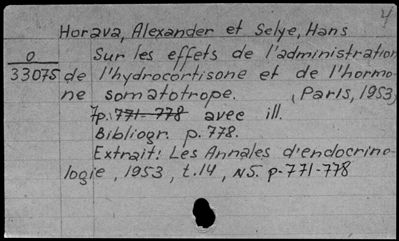 4
Horava, Alexander et Selye, Hans
O Sur les effets de l'administration
33075 de l'hydrocortisone et de l'hormo-
ne somatotrope. (Paris, 1953)
7p. 771-778 avec ill.
Bibliogr. p. 778.
Extrait: Les Annales d'endocrino-
logie, 1953, t.14, N5. p-771-778